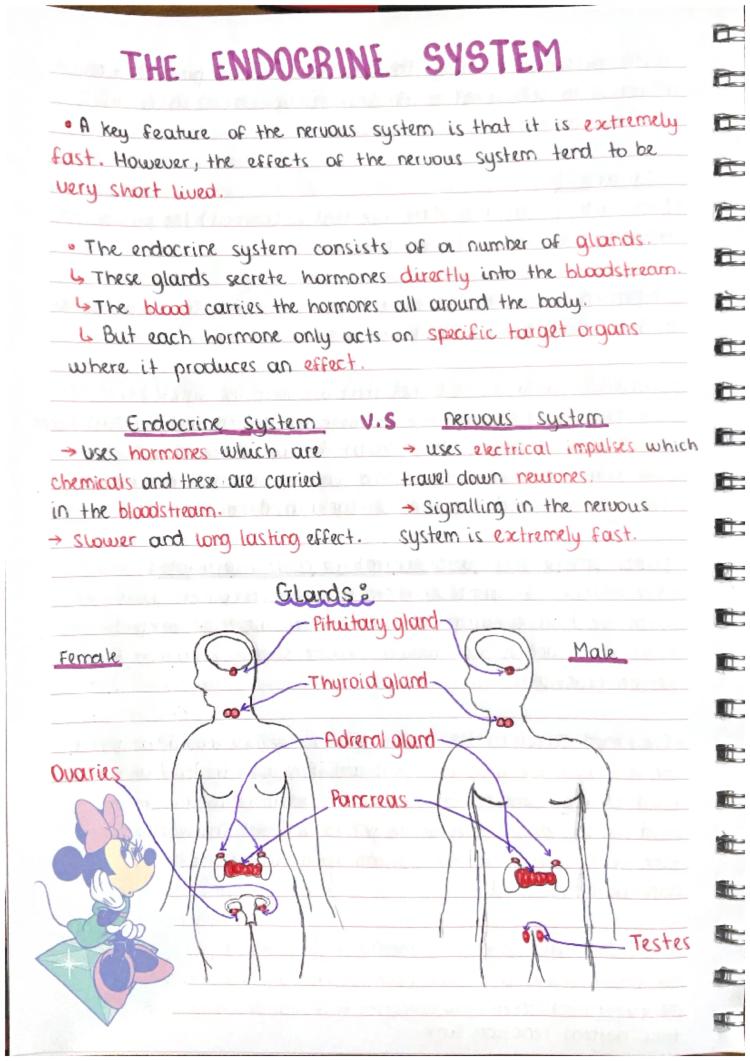 THE ENDOCRINE SYSTEM
• A key feature of the nervous system is that it is extremely
fast. However, the effects of the nervous system tend to be
very short lived.
• The endocrine system consists of a number of glands.
↳ These glands secrete hormones directly into the bloodstream.
↳ The blood carries the hormones all around the body.
↳ But each hormone only acts on specific target organs
where it produces an effect.
Endocrine system V.S nervous system
→ uses hormones which are
chemicals and these are carried
in the bloodstream.
→ slower and long lasting effect.
→ uses electrical impulses which
travel down neurones.
→ Signalling in the nervous
system is extremely fast.
Glands:
Female
Male
Pituitary gland
Thyroid gland
Adrenal gland
Ovaries
Pancreas
Testes